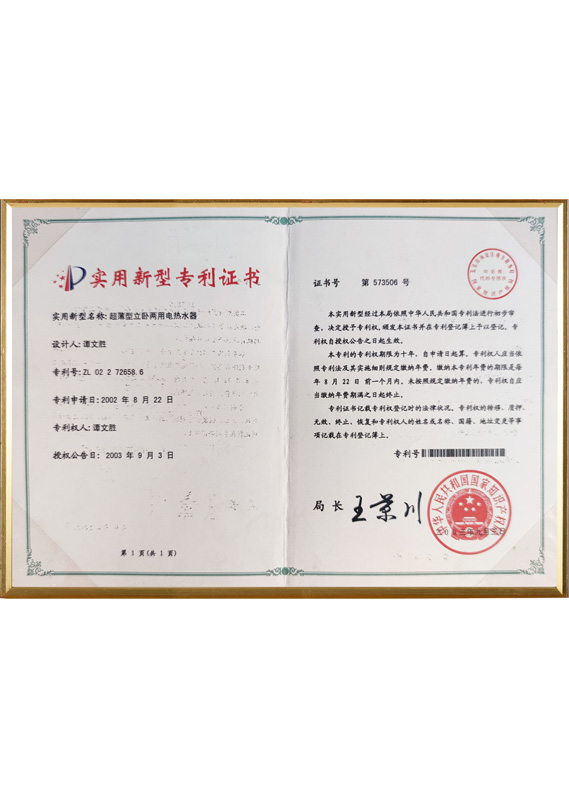 实用新型专利证书
实用新型名称：超薄型立卧两用电热水器
设计人：谭文胜
专利号：ZL 02 2 72658.6
专利申请日：2002 年 8 月 22 日
专利权人：谭文胜
授权公告日：2003 年 9 月 3 日
第 1 页(共 1 页)
证书号 第 573506 号
本实用新型经过本局依照中华人民共和国专利法进行初步审
查，决定授予专利权，颁发本证书并在专利登记簿上予以登记。专
利权自授权公告之日起生效。
本专利的专利权期限为十年，自申请日起算。专利权人应当依
照专利法及其实施细则规定缴纳年费。缴纳本专利年费的期限是每
年 8 月 22 日前一个月内。未按照规定缴纳年费的，专利权自应
当缴纳年费期满之日起终止。
专利证书记载专利权登记时的法律状况。专利权的转移、质押、
无效、终止、恢复和专利权人的姓名或名称、国籍、地址变更等事
项记载在专利登记簿上。
专利号
局长 王景川
中华人民共和国国家知识产权局
二〇〇三年九月三日